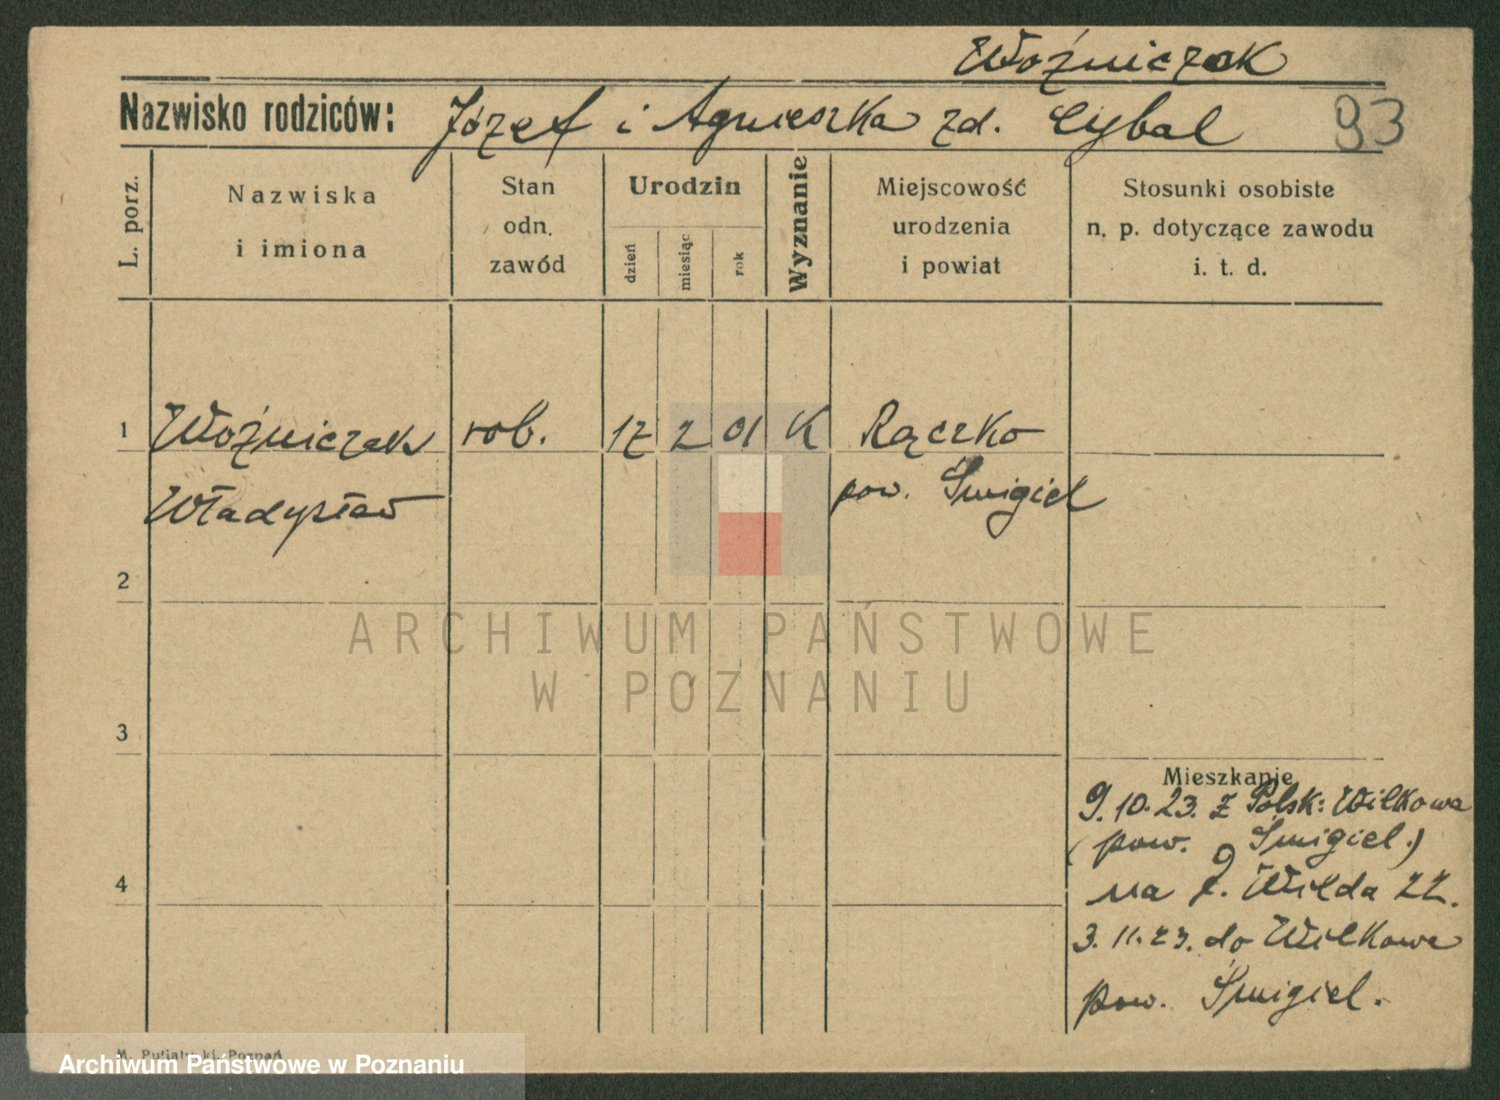 Woźniczak
Nazwisko rodziców: Józef i Agnieszka zd. Cybal
93
L. porz.
Nazwiska
i imiona
Stan
odn.
zawód
Urodzin
dzień
miesiąc
rok
Wyznanie
Miejscowość
urodzenia
i powiat
Stosunki osobiste
n. p. dotyczące zawodu
i. t. d.
1 Woźniczak rob. 17 2 01 K Rączko
Władysław pow. Śmigiel
2
ARCHIWUM PAŃSTWOWE
W POZNANIU
3
Mieszkanie
9.10.23. z Polsk: Wilkowa
(pow. Śmigiel.)
4
na g. Wilda 22.
3.11.23. do Wilkowa
pow. Śmigiel.
Poznań
Archiwum Państwowe w Poznaniu